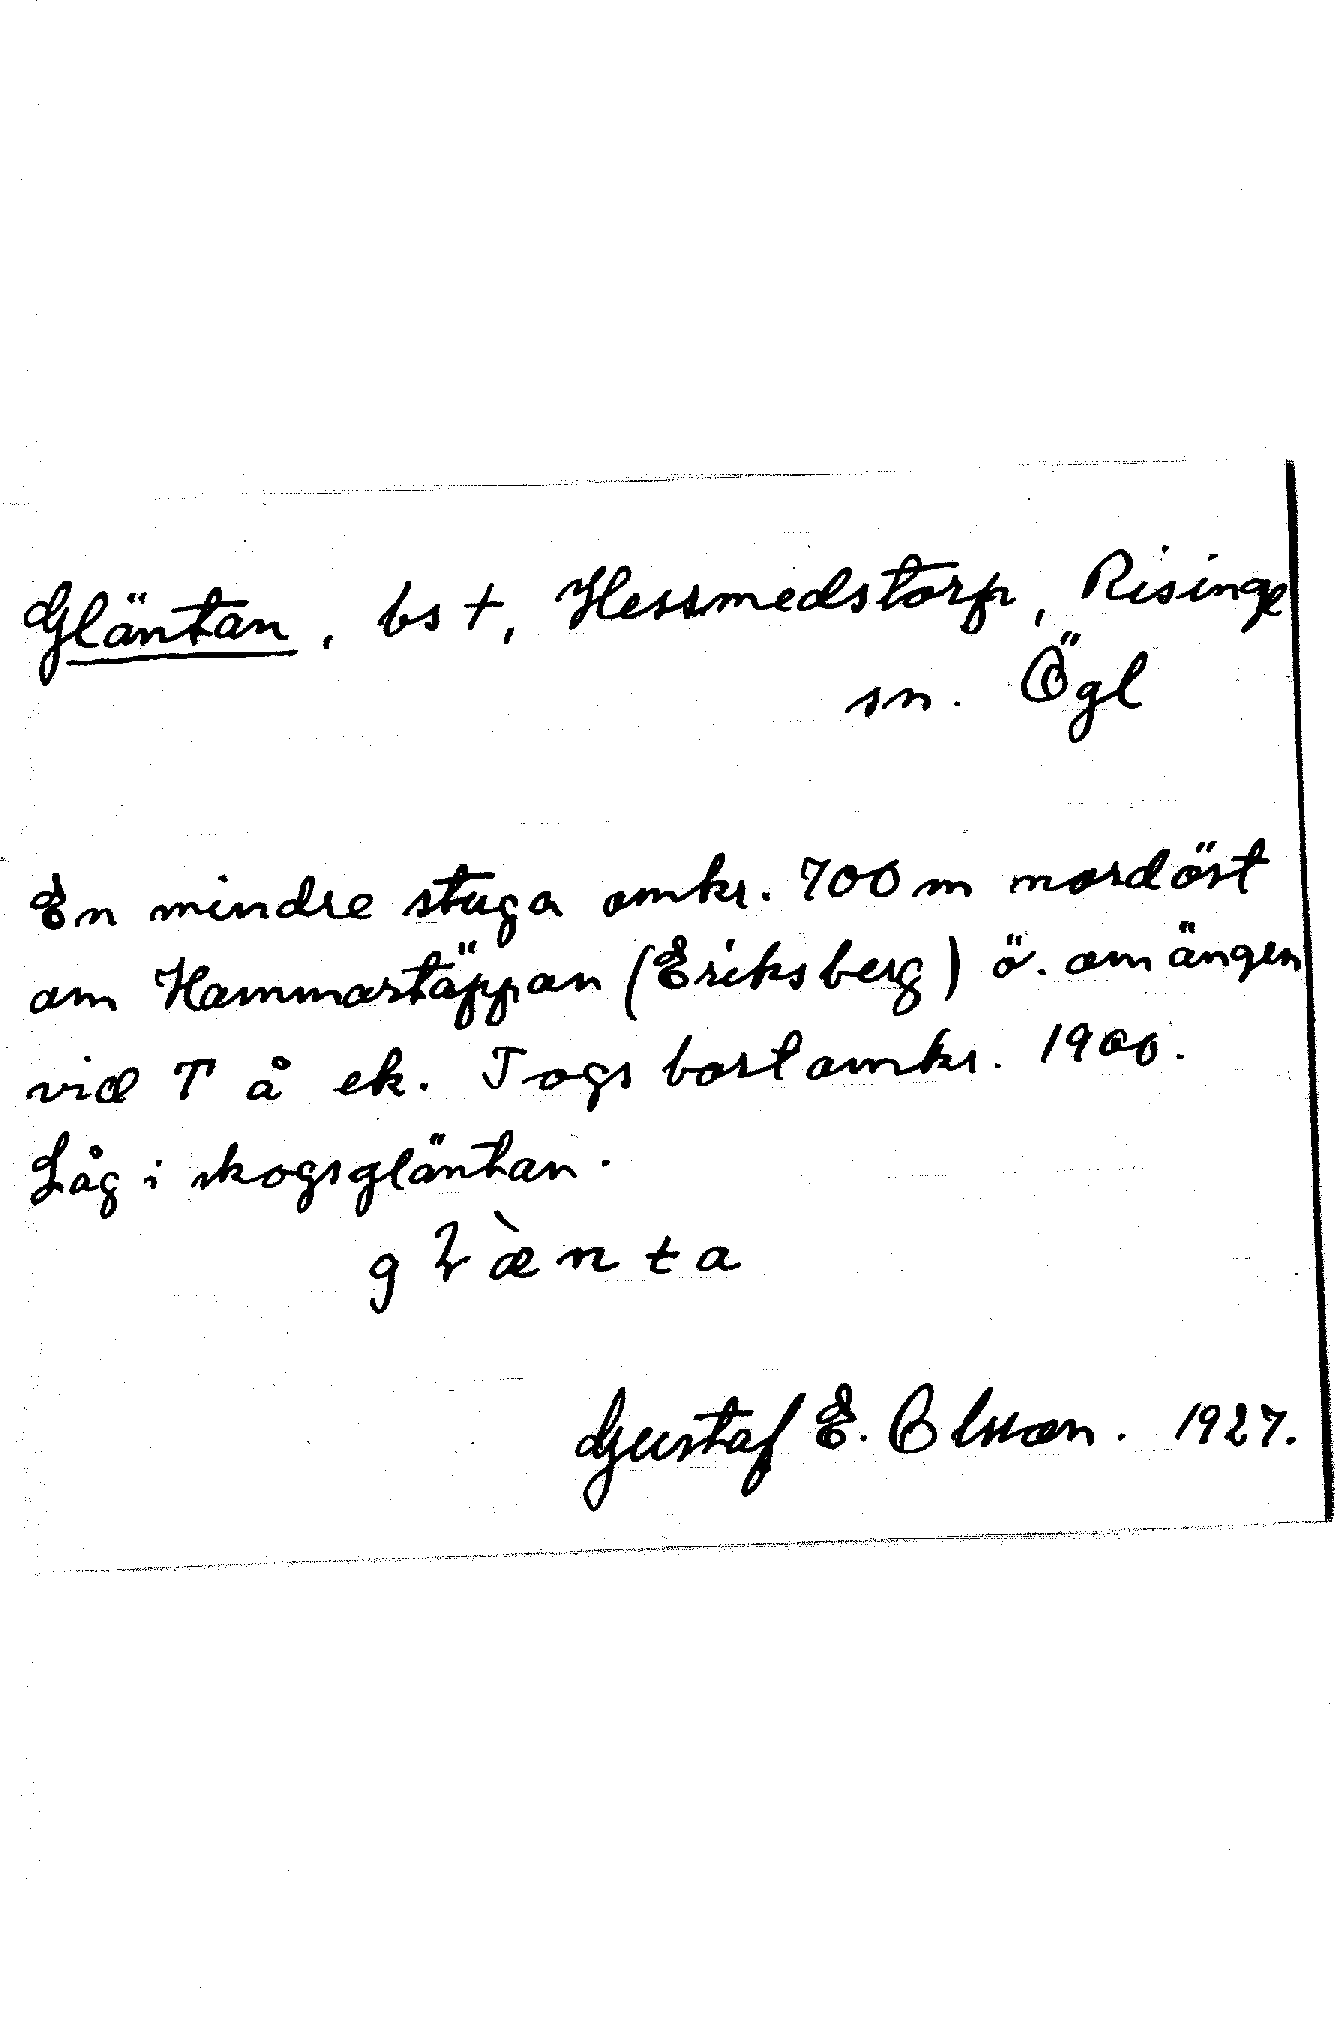 Gläntan, bs †, Hessmedstorp, Risinge
sn. Ögl
En mindre stuga omkr. 700 m nordöst
om Hammartäppan (Eriksberg) ö. om ängen
vid T å ek. Togs bort omkr. 1900.
Låg i skogsgläntan.
Gustaf E. Olsson. 1927.